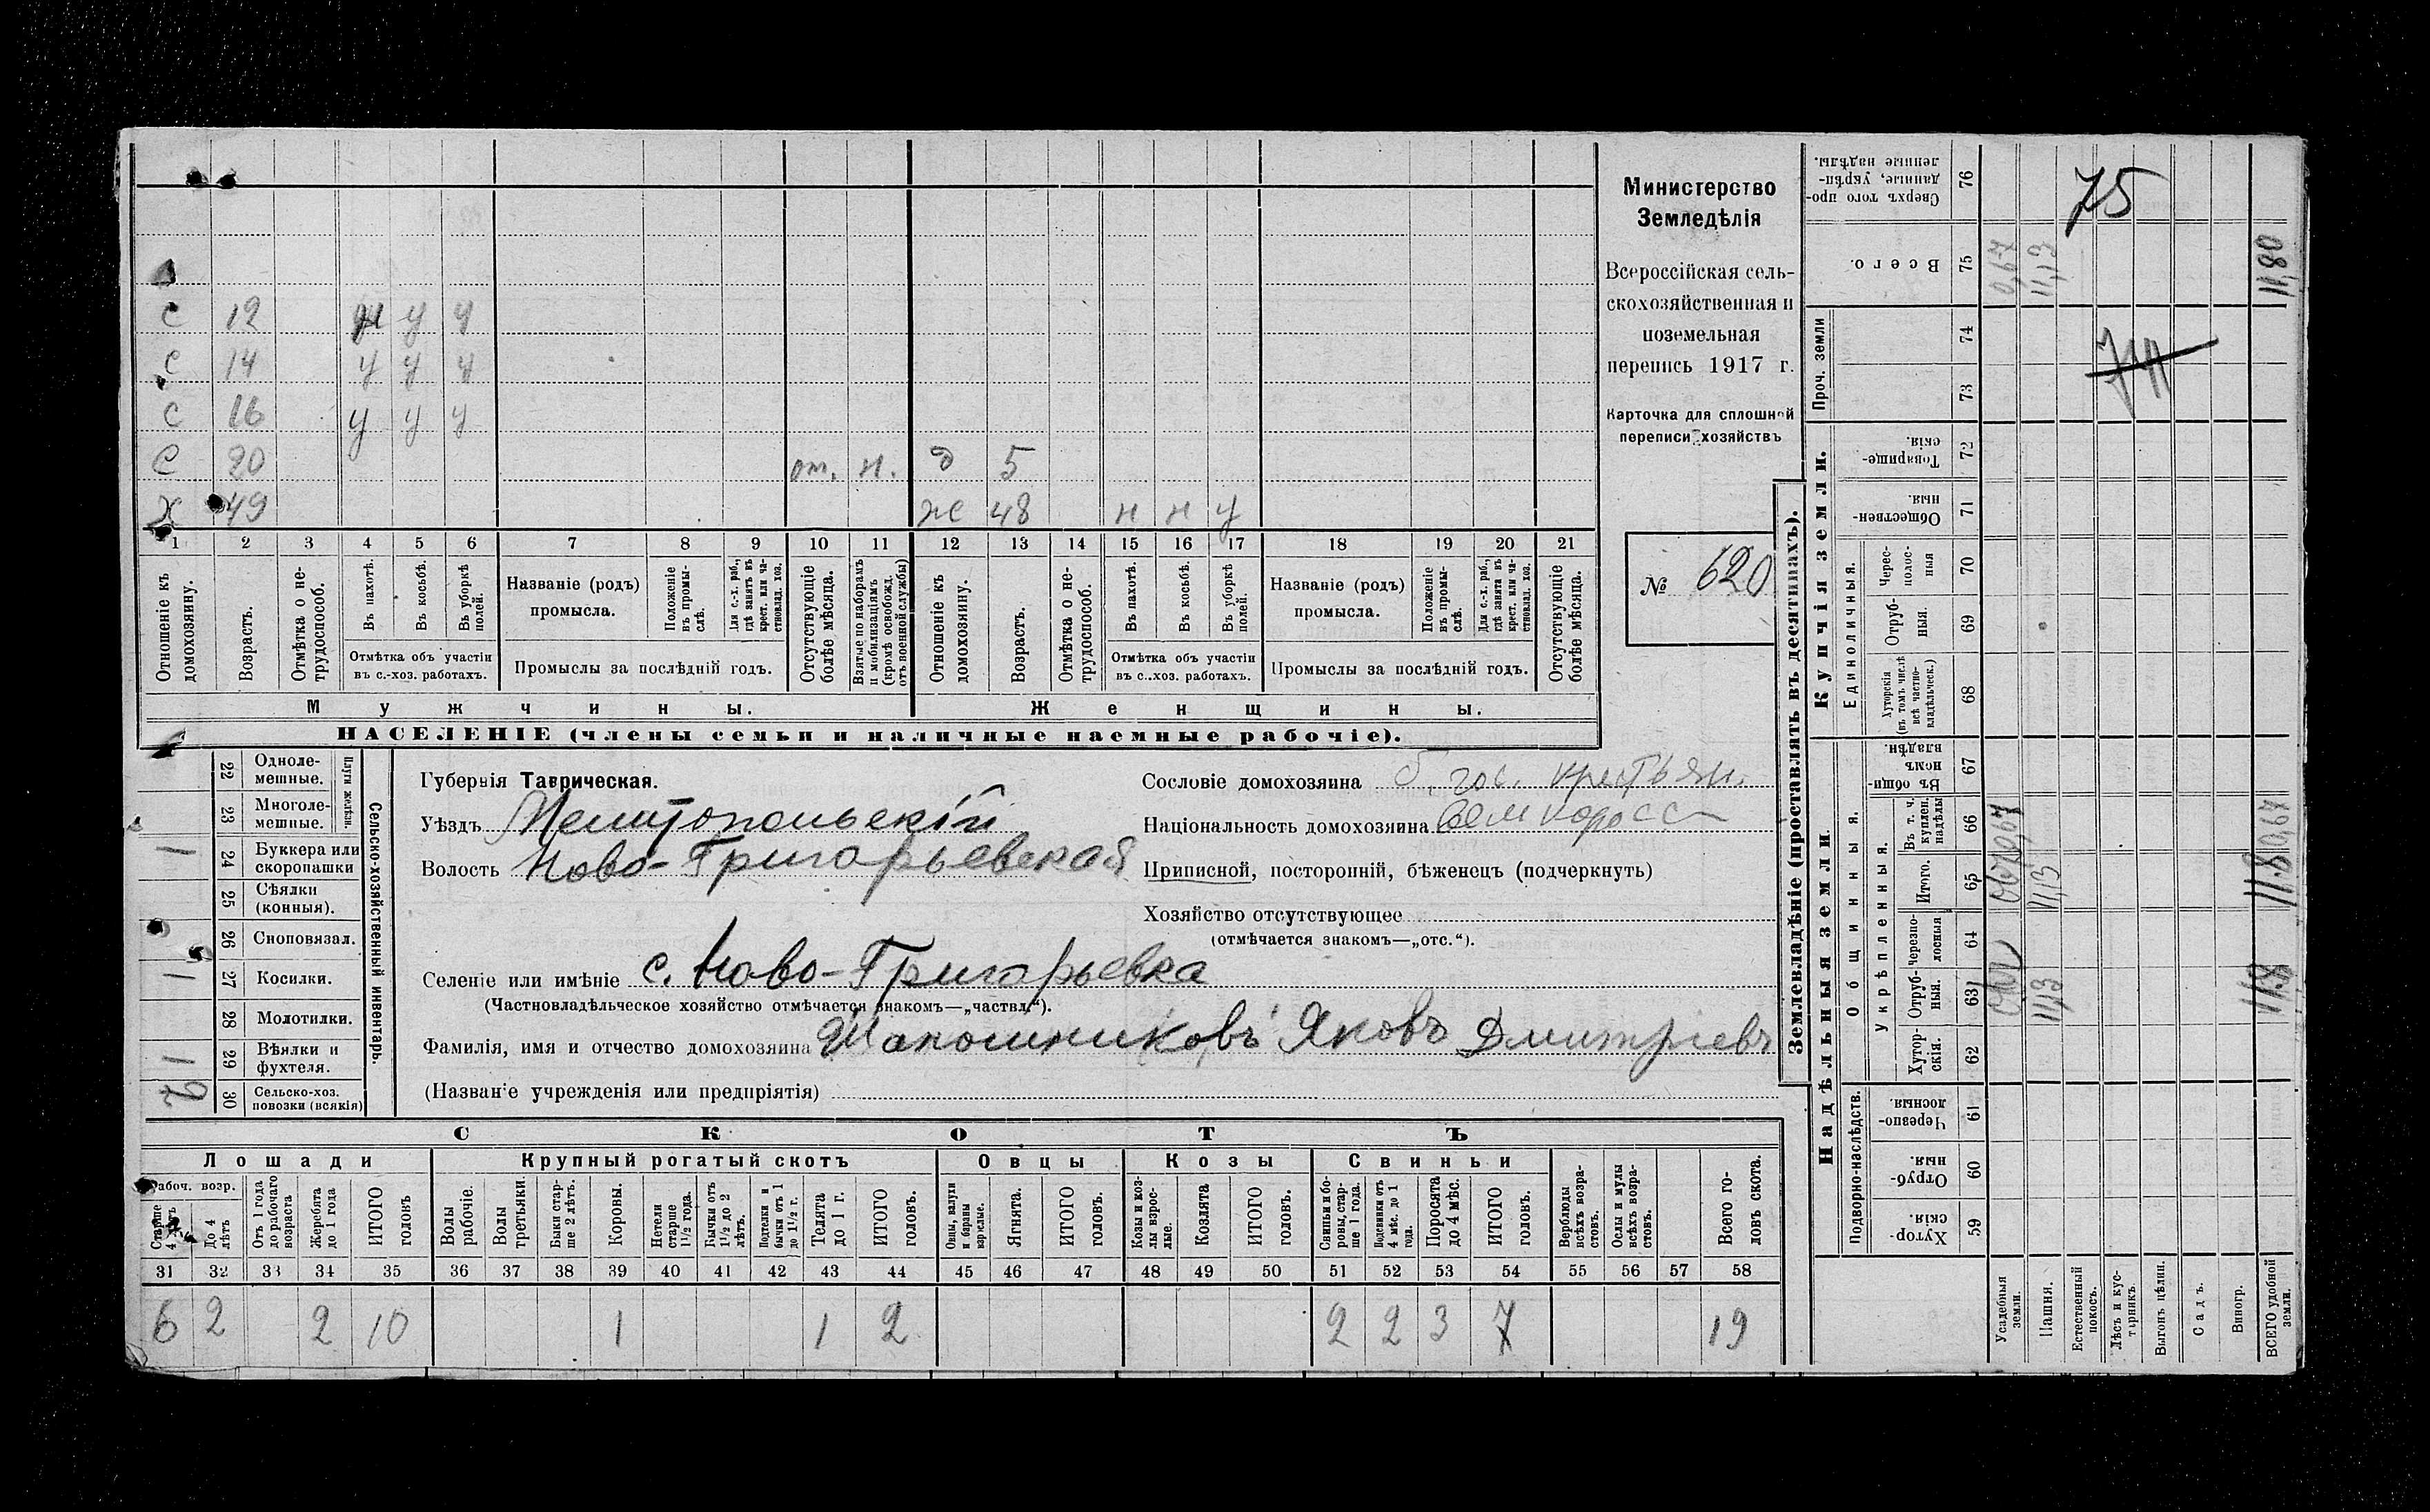 Министерство
Земледѣлія
Всероссійская сель-
скохозяйственная и
поземельная
перепись 1917 г.
Карточка для сплошной
переписи хозяйствъ
№ 620
С 12 у у
С 14 у у у
С 16 у у у
С 20 от. н. д 5
Х 49 ж 48 н н у
1 2 3 4 5 6 7 8 9 10 11 12 13 14 15 16 17 18 19 20 21
Отношеніе къ домохозяину.
Возрастъ.
Отмѣтка о не-трудоспособ.
Въ пахотѣ.
Въ косьбѣ.
Въ уборкѣ полей.
Отмѣтка объ участіи
въ с.-хоз. работахъ.
Названіе (родъ)
промысла.
Положеніе въ промы-слѣ.
Для с.-х. раб., гдѣ занятъ въ крест. или ча-стновлад. хоз.
Промыслы за послѣдній годъ.
Отсутствующіе болѣе мѣсяца.
Взятые по наборамъ и мобилизаціямъ (кромѣ освобожд. отъ военной службы)
Отношеніе къ домохозяину.
Возрастъ.
Отмѣтка о не-трудоспособ.
Въ пахотѣ.
Въ косьбѣ.
Въ уборкѣ полей.
Отмѣтка объ участіи
въ с.-хоз. работахъ.
Названіе (родъ)
промысла.
Положеніе въ промы-слѣ.
Для с.-х. раб., гдѣ занята въ крест. или ча-стновлад. хоз.
Промыслы за послѣдній годъ.
Отсутствующіе болѣе мѣсяца.
Мужчины. Женщины.
НАСЕЛЕНІЕ (члены семьи и наличные наемные рабочіе).
Сельско-хозяйственный инвентарь.
Плуги желѣзн.
22 Одноле-мешные.
23 Многоле-мешные.
24 Буккера или скоропашки 1
25 Сѣялки (конныя).
26 Сноповязал.
27 Косилки. 1
28 Молотилки.
29 Вѣялки и фухтеля. 1
30 Сельско-хоз. повозки (всякія)
Губернія Таврическая.
Уѣздъ Мелитопольскій
Волость Ново-Григорьевская
Селеніе или имѣніе с. Ново-Григорьевка
(Частновладѣльческое хозяйство отмѣчается знакомъ—„частвл.“).
Фамилія, имя и отчество домохозяина Шапошниковъ Яковъ Дмитріевъ
(Названіе учрежденія или предпріятія)
Сословіе домохозяина б. гос. крестьян.
Національность домохозяина великоросс
Приписной, посторонній, бѣженецъ (подчеркнуть)
Хозяйство отсутствующее
(отмѣчается знакомъ—„отс.“).
СКОТЪ
Лошади Крупный рогатый скотъ Овцы Козы Свиньи
Рабоч. возр.
Старше 4 лѣтъ
До 4 лѣтъ
Отъ 1 года до рабочаго возраста
Жеребята до 1 года
ИТОГО головъ
Волы рабочіе.
Волы третьяки.
Быки стар-ше 2 лѣтъ.
Коровы.
Нетели старше 1 1/2 года.
Бычки отъ 1 1/2 до 2 лѣтъ.
Подтелки и бычки отъ 1 до 1 1/2 г.
Телята до 1 г.
ИТОГО головъ.
Овцы, валухи и бараны взрослые.
Ягнята.
ИТОГО головъ.
Козы и коз-лы взрос-лые.
Козлята
ИТОГО головъ.
Свиньи и бо-ровы, стар-ше 1 года.
Подсвинки отъ 4 мѣс. до 1 года.
Поросята до 4 мѣс.
ИТОГО головъ.
Верблюды всѣхъ возра-стовъ.
Ослы и мулы всѣхъ возра-стовъ.
Всего го-ловъ скота.
31 32 33 34 35 36 37 38 39 40 41 42 43 44 45 46 47 48 49 50 51 52 53 54 55 56 57 58
6 2 2 10 1 1 2 2 2 3 7 19
Землевладѣніе (проставлять въ десятинахъ).
Купчія земли.
Надѣльныя земли
Сверхъ того про-данные, укрѣп-ленные надѣлы. 76
Всего. 75
Проч. земли 74 73
Товарище-скія. 72
Обществен-ныя. 71
Единоличныя.
Черес-полос-ныя 70
Отруб-ныя. 69
Хуторскія (въ томъ числѣ всѣ частно-владѣльческ.) 68
Общинныя.
Въ общи-номъ владѣн. 67
Укрѣпленныя.
Въ т. ч. куплен. надѣлы 66
Итого. 65
Черезпо-лосныя 64
Отруб-ныя. 63
Хутор-скія. 62
Подворно-наслѣдств.
Черезпо-лосныя. 61
Отруб-ныя. 60
Хутор-скія. 59
Усадебныя земли.
Пашня.
Естественный покосъ.
Лѣсъ и кус-тарникъ.
Выгонъ цѣлин.
Садъ.
Виногр.
ВСЕГО удобной земли.
75
74
0,67
11,13
11,80
0,67
11,13
11.8
0,67
11,13
11.8